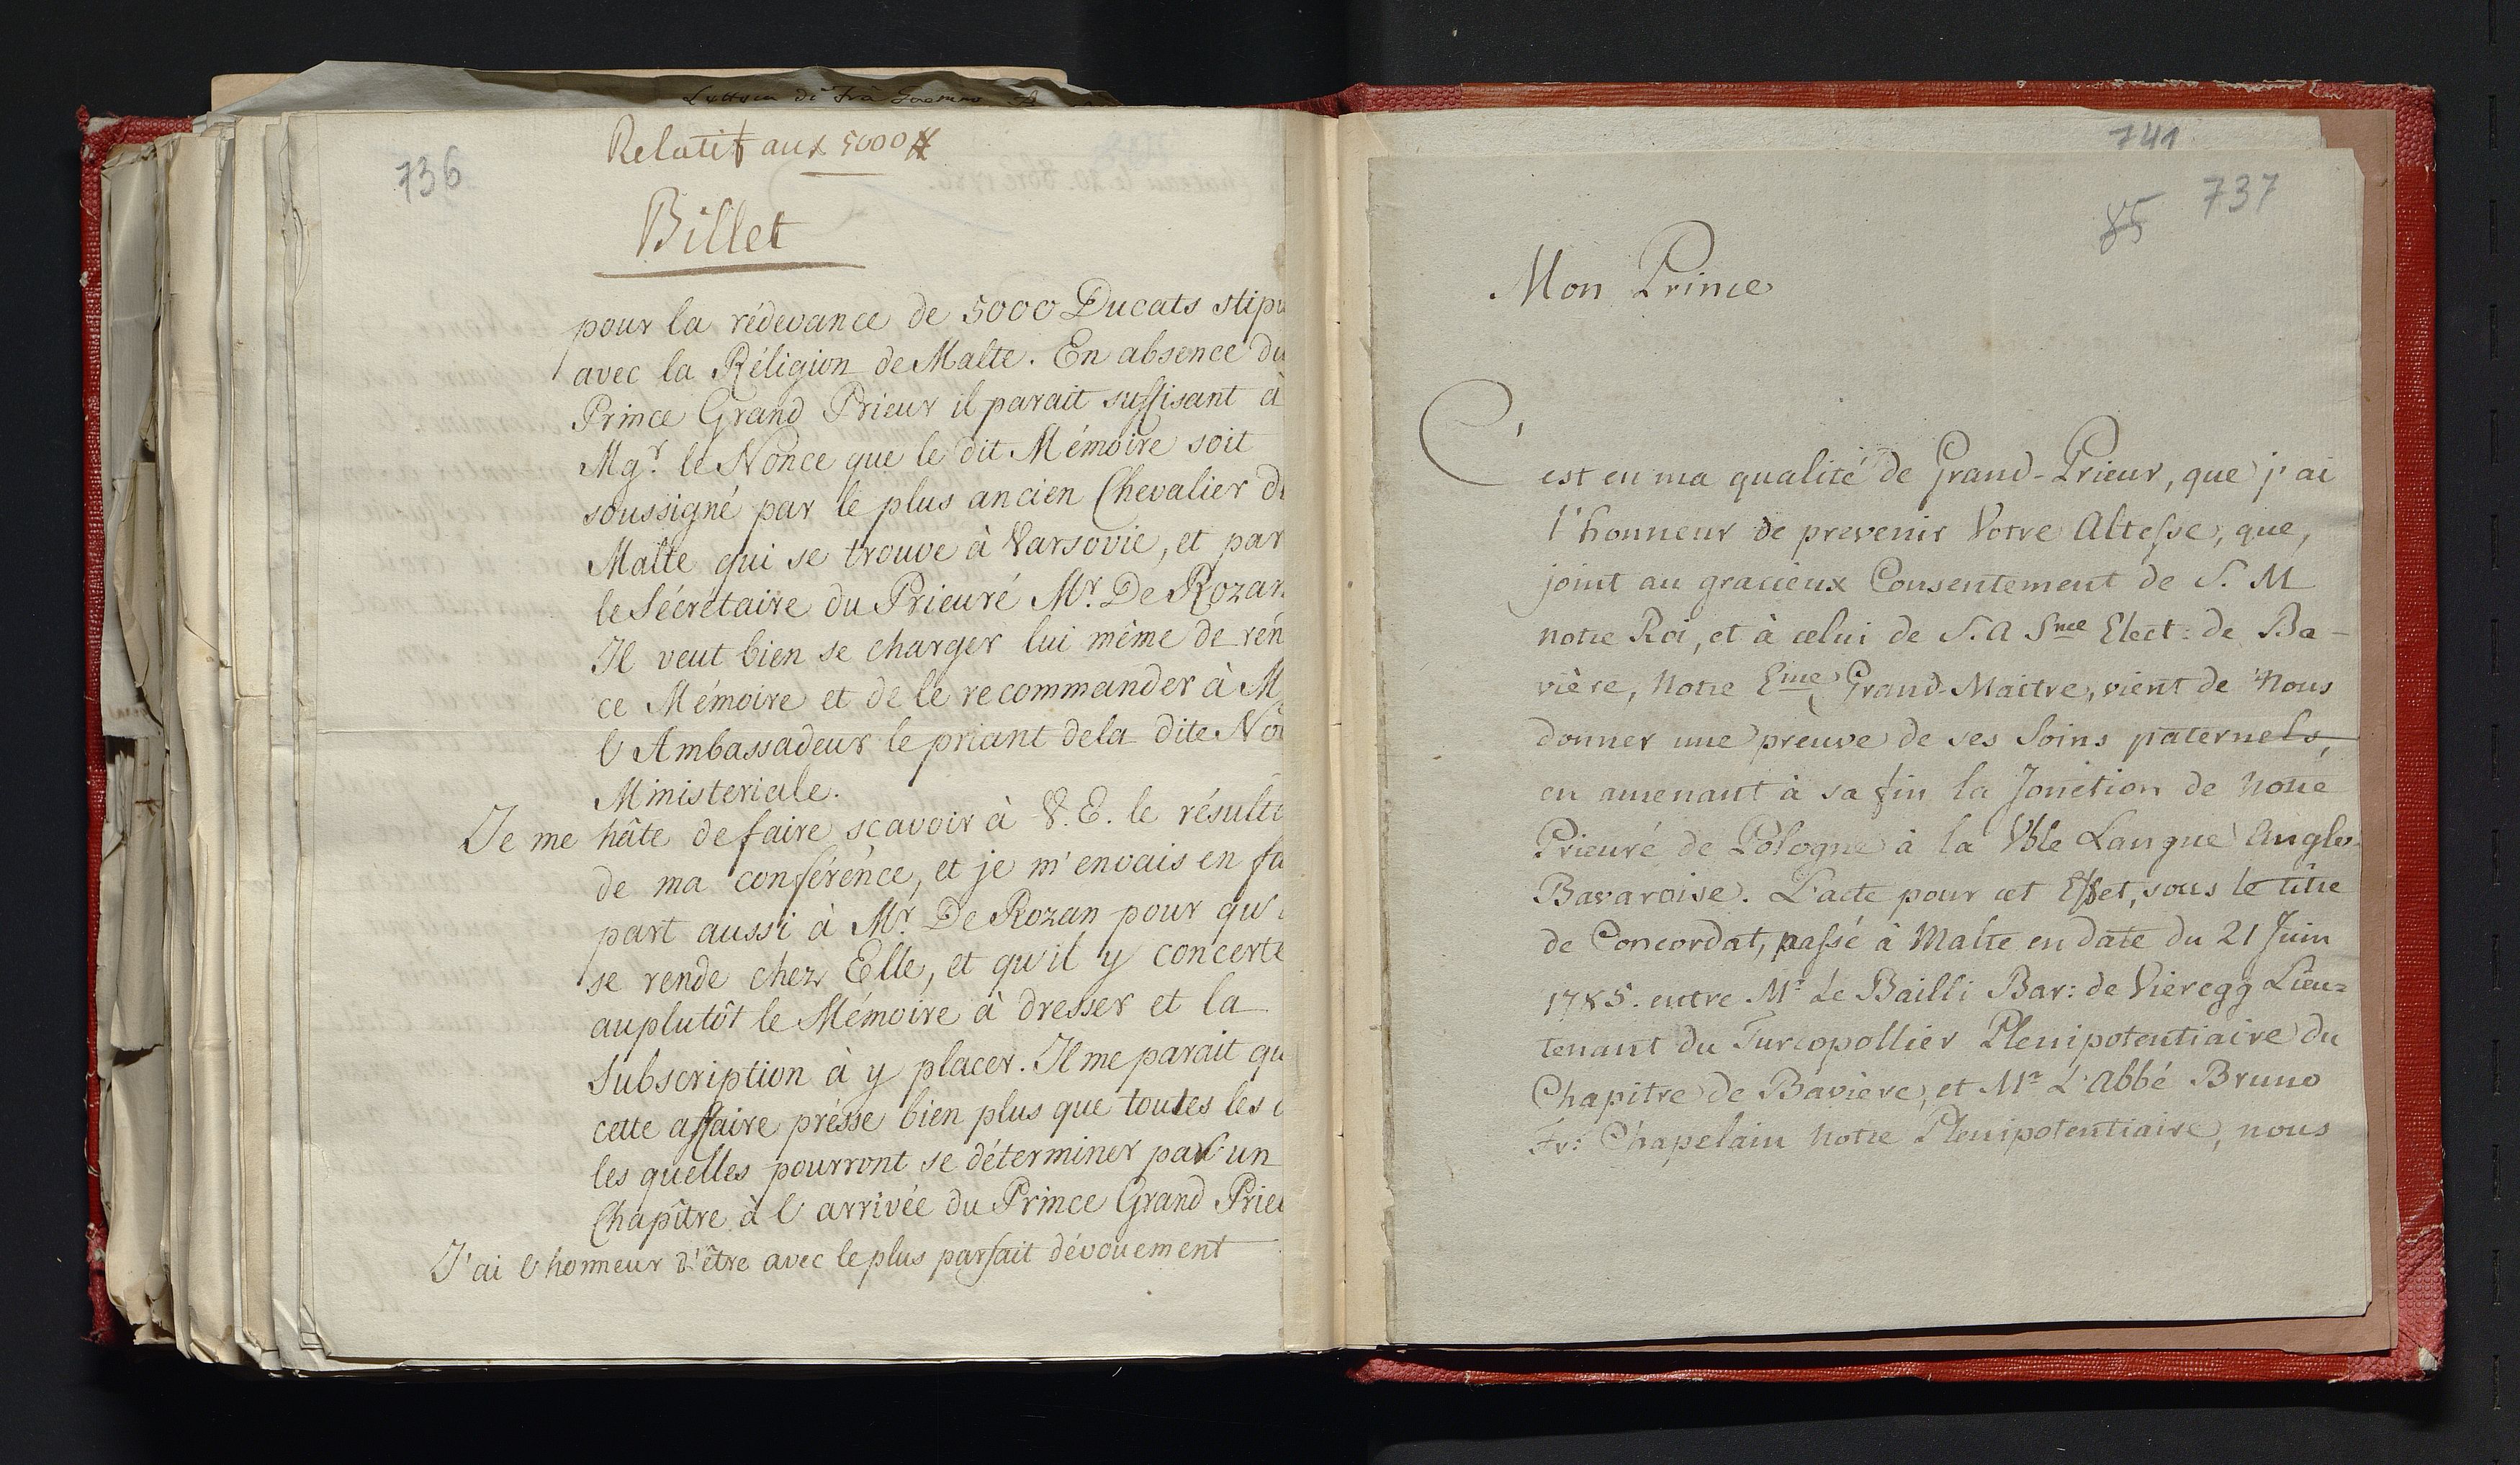 736
Relatif aux 5000 #
Billet
pour la rédevance de 5000 Ducats stipu
avec la Réligion de Malte. En absence du
Prince Grand Prieur il parait suffisant à
Mgr. le Nonce que le dit Mémoire soit
soussigné par le plus ancien Chevalier de
Malte qui se trouve à Varsovie, et par
le Sécrétaire du Prieuré Mr. De Rozan
Il veut bien se charger lui même de ren
ce Mémoire et de le recommander à M
l'Ambassadeur le priant dela dite No
Ministeriale.
Je me hâte de faire scavoir à V. E. le résulta
de ma conférence, et je m'envais en fa
part aussi à Mr. De Rozan pour qu'i
se rende chez Elle, et qu'il y concerte
auplutôt le Mémoire à dresser et la
Subscription à y placer. Il me parait qu
cette affaire présse bien plus que toutes les
les quelles pourront se déterminer par un
Chapître à l'arrivée du Prince Grand Prieu
J'ai l'honneur d'être avec le plus parfait dévouement
741
737
85
Mon Prince
C'est en ma qualité de Grand-Prieur, que j'ai
l'honneur de prevenir Votre Altesse, que,
joint au gracieux Consentement de S. M
notre Roi, et à celui de S. A Sme Elect: de Ba-
vière, Notre Eme Grand-Maitre, vient de Nous
donner une preuve de ses Soins paternels,
en amenant à sa fin la Jonction de Notre
Prieuré de Pologne à la Vble Langue Anglo-
Bavaroise. L'acte pour cet Effet, sous le titre
de Concordat, passé à Malte en date du 21 Juin
1785. entre Mr. Le Bailli Bar: de Vieregg Lieu=
tenant du Turcopollier Plenipotentiaire du
Chapitre de Bavière, et Mr. L'Abbé Bruno
Fr: Chapelain Notre Plenipotentiaire, nous